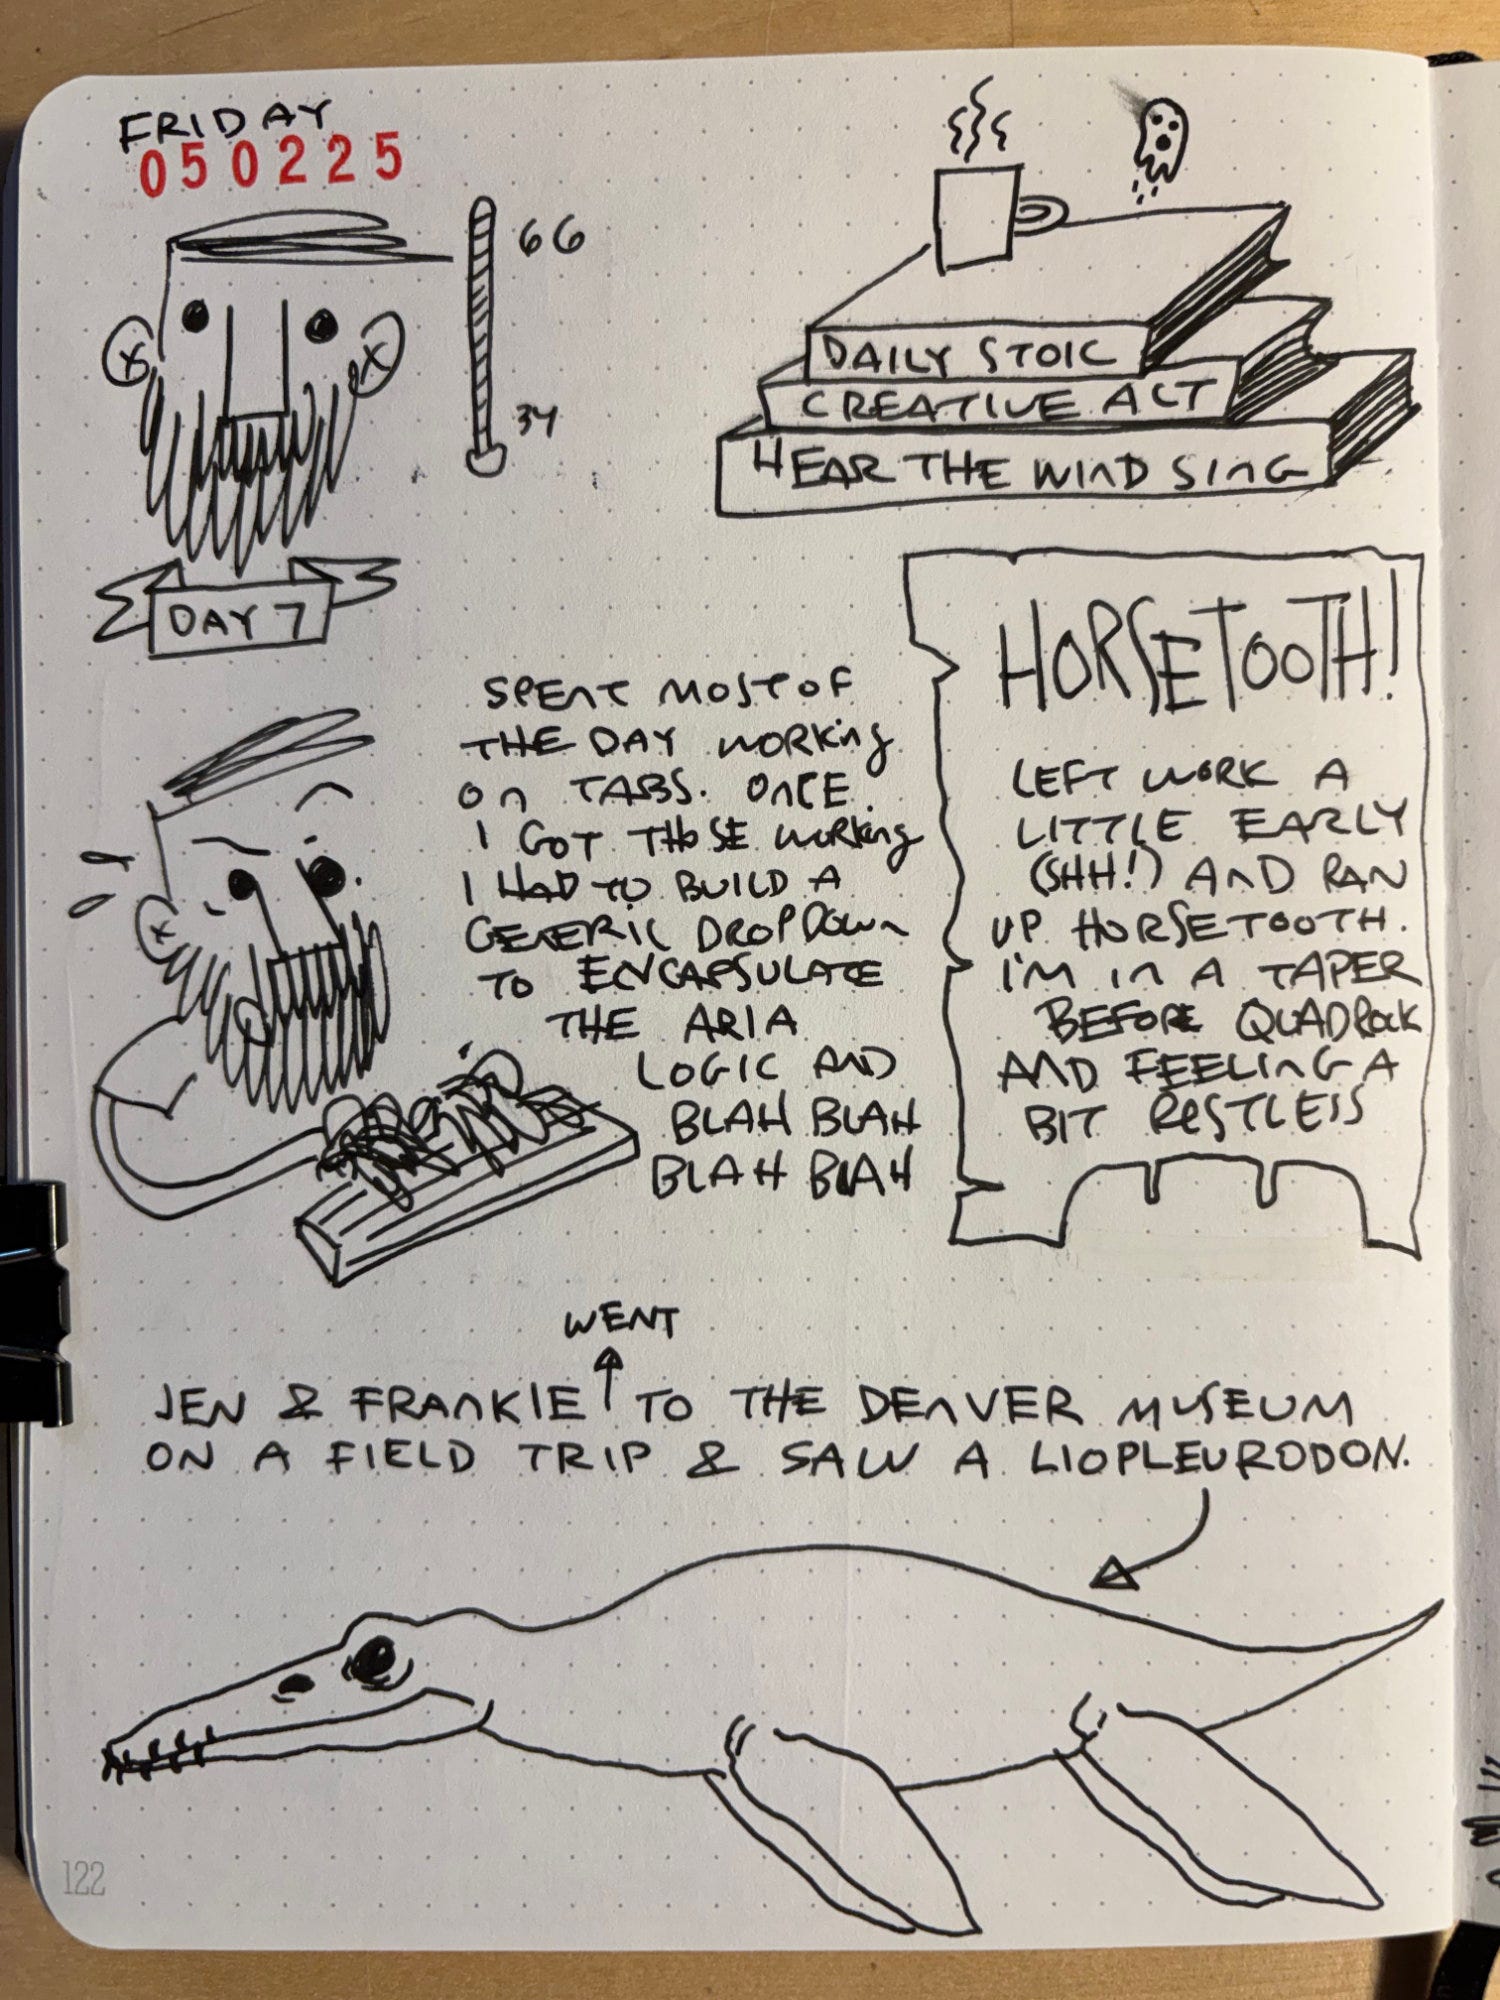 FRIDAY
050225
66
34
DAY 7
DAILY STOIC
CREATIVE ACT
HEAR THE WIND SING
SPENT MOST OF
THE DAY WORKING
ON TABS. ONCE
I GOT THOSE WORKING
I HAD TO BUILD A
GENERIC DROPDOWN
TO ENCAPSULATE
THE ARIA
LOGIC AND
BLAH BLAH
BLAH BLAH
HORSETOOTH!
LEFT WORK A
LITTLE EARLY
(SHH!) AND RAN
UP HORSETOOTH.
I'M IN A TAPER
BEFORE QUADROCK
AND FEELING A
BIT RESTLESS
WENT
JEN & FRANKIE ↑ TO THE DENVER MUSEUM
ON A FIELD TRIP & SAW A LIOPLEURODON.
122